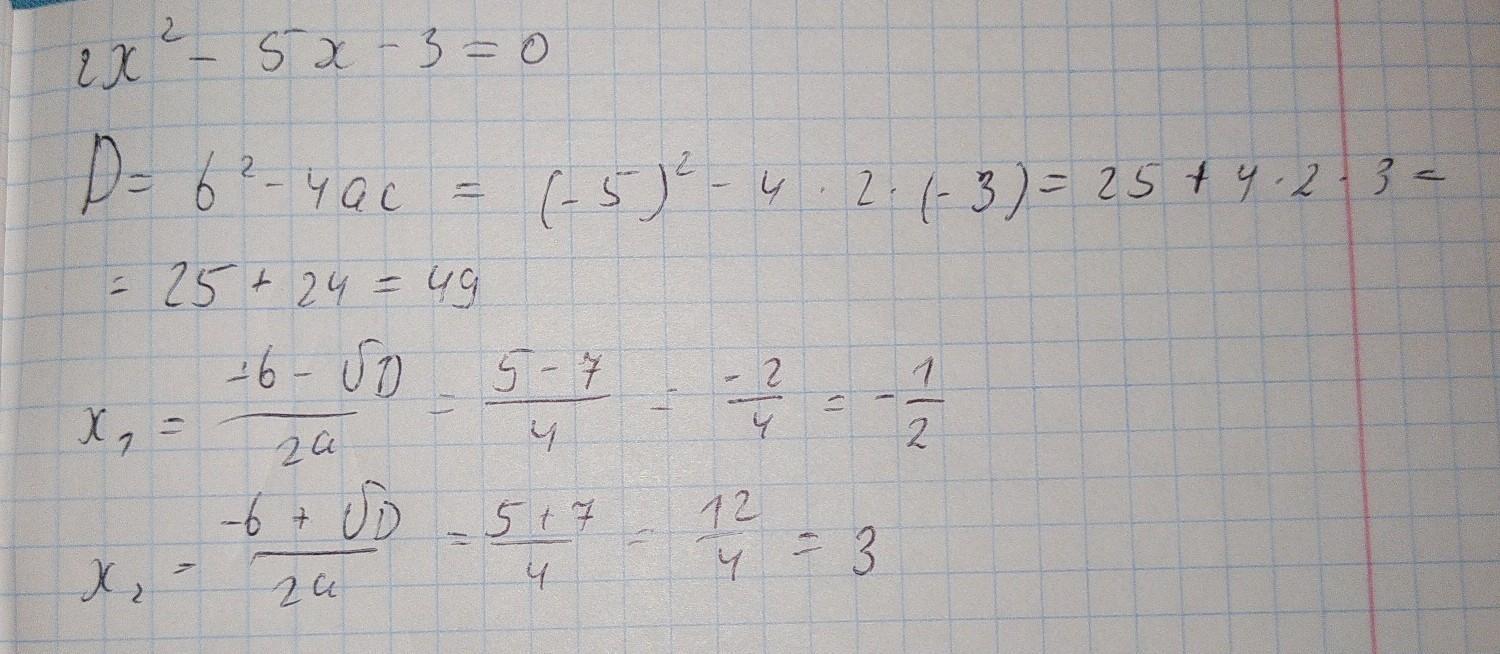 2x² - 5x - 3 = 0
D = b² - 4ac = (-5)² - 4 · 2 · (-3) = 25 + 4 · 2 · 3 =
= 25 + 24 = 49
x₁ = (-b - √D)/(2a) = (5 - 7)/4 = (-2)/4 = -1/2
x₂ = (-b + √D)/(2a) = (5 + 7)/4 = 12/4 = 3